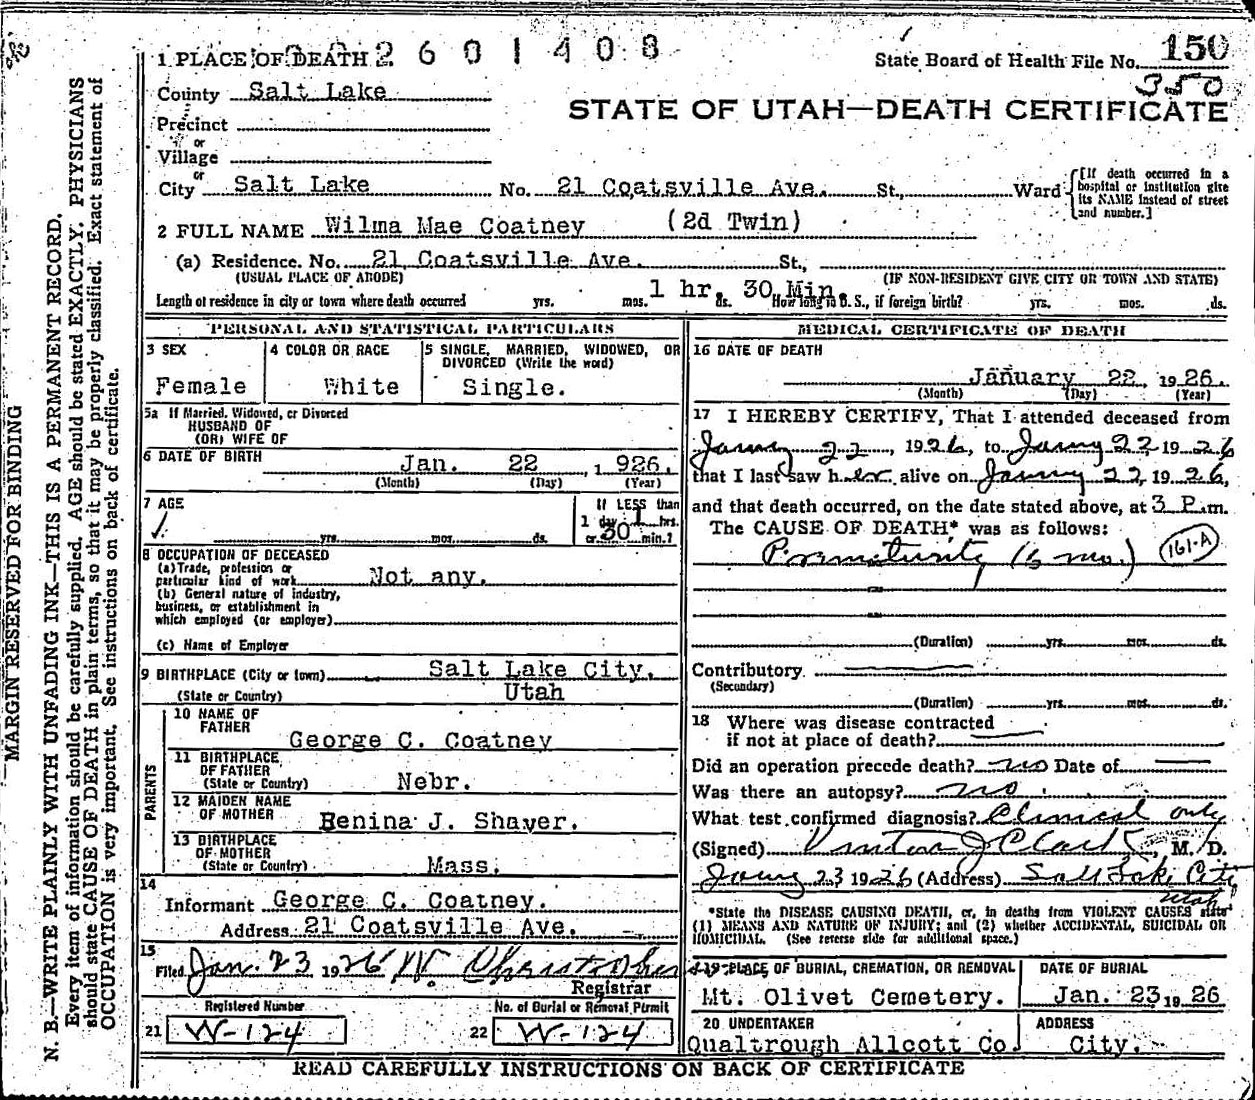 2 6 0 1 4 0 8
1 PLACE OF DEATH
State Board of Health File No. 150
350
County Salt Lake
STATE OF UTAH—DEATH CERTIFICATE
Precinct
or
Village
or
City Salt Lake No. 21 Coatsville Ave. St., Ward
[If death occurred in a hospital or institution give its NAME instead of street and number.]
2 FULL NAME Wilma Mae Coatney (2d Twin)
(a) Residence. No. 21 Coatsville Ave. St.,
(USUAL PLACE OF ABODE) (IF NON-RESIDENT GIVE CITY OR TOWN AND STATE)
1 hr. 30 Min.
Length of residence in city or town where death occurred yrs. mos. ds. How long in U. S., if foreign birth? yrs. mos. ds.
PERSONAL AND STATISTICAL PARTICULARS
3 SEX
Female
4 COLOR OR RACE
White
5 SINGLE, MARRIED, WIDOWED, OR
DIVORCED (Write the word)
Single.
5a If Married, Widowed, or Divorced
HUSBAND OF
(OR) WIFE OF
6 DATE OF BIRTH Jan. 22 1926.
(Month) (Day) (Year)
7 AGE
yrs. mos. ds.
If LESS than
1 day 1 hrs.
or 30 min.?
8 OCCUPATION OF DECEASED
(a) Trade, profession or
particular kind of work Not any.
(b) General nature of industry,
business, or establishment in
which employed (or employer)
(c) Name of Employer
9 BIRTHPLACE (City or town) Salt Lake City,
(State or Country) Utah
PARENTS
10 NAME OF
FATHER
George C. Coatney
11 BIRTHPLACE
OF FATHER
(State or Country) Nebr.
12 MAIDEN NAME
OF MOTHER Benina J. Shaver.
13 BIRTHPLACE
OF MOTHER
(State or Country) Mass.
14
Informant George C. Coatney.
Address 21 Coatsville Ave.
15
Filed Jan. 23 1926 W. Christopherson
Registrar
Registered Number
21 W-124
No. of Burial or Removal Permit
22 W-124
MEDICAL CERTIFICATE OF DEATH
16 DATE OF DEATH
January 22 1926.
(Month) (Day) (Year)
17 I HEREBY CERTIFY, That I attended deceased from
Jany 22, 1926, to Jany 22 1926
that I last saw her alive on Jany 22, 1926,
and that death occurred, on the date stated above, at 3 P.m.
The CAUSE OF DEATH* was as follows:
Prematurity (6 mo.) 161-A
(Duration) yrs. mos. ds.
Contributory
(Secondary)
(Duration) yrs. mos. ds.
18 Where was disease contracted
if not at place of death?
Did an operation precede death? no Date of
Was there an autopsy? no
What test confirmed diagnosis? Clinical only
(Signed) J Clark, M. D.
Jany 23 1926 (Address) Salt Lake City
Utah
*State the DISEASE CAUSING DEATH, or, in deaths from VIOLENT CAUSES state
(1) MEANS AND NATURE OF INJURY; and (2) whether ACCIDENTAL, SUICIDAL OR
HOMICIDAL. (See reverse side for additional space.)
19 PLACE OF BURIAL, CREMATION, OR REMOVAL
Mt. Olivet Cemetery.
DATE OF BURIAL
Jan. 23 1926
20 UNDERTAKER
Qualtrough Allcott Co.
ADDRESS
City.
READ CAREFULLY INSTRUCTIONS ON BACK OF CERTIFICATE
MARGIN RESERVED FOR BINDING
N. B.—WRITE PLAINLY WITH UNFADING INK—THIS IS A PERMANENT RECORD.
Every item of information should be carefully supplied. AGE should be stated EXACTLY. PHYSICIANS
should state CAUSE OF DEATH in plain terms, so that it may be properly classified. Exact statement of
OCCUPATION is very important. See instructions on back of certificate.